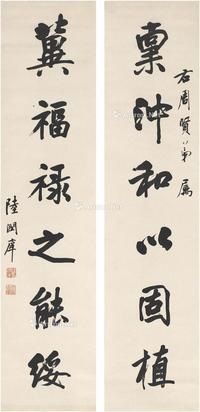 右周賢弟屬
稟沖和以固植
冀福祿之能綏
陸潤庠